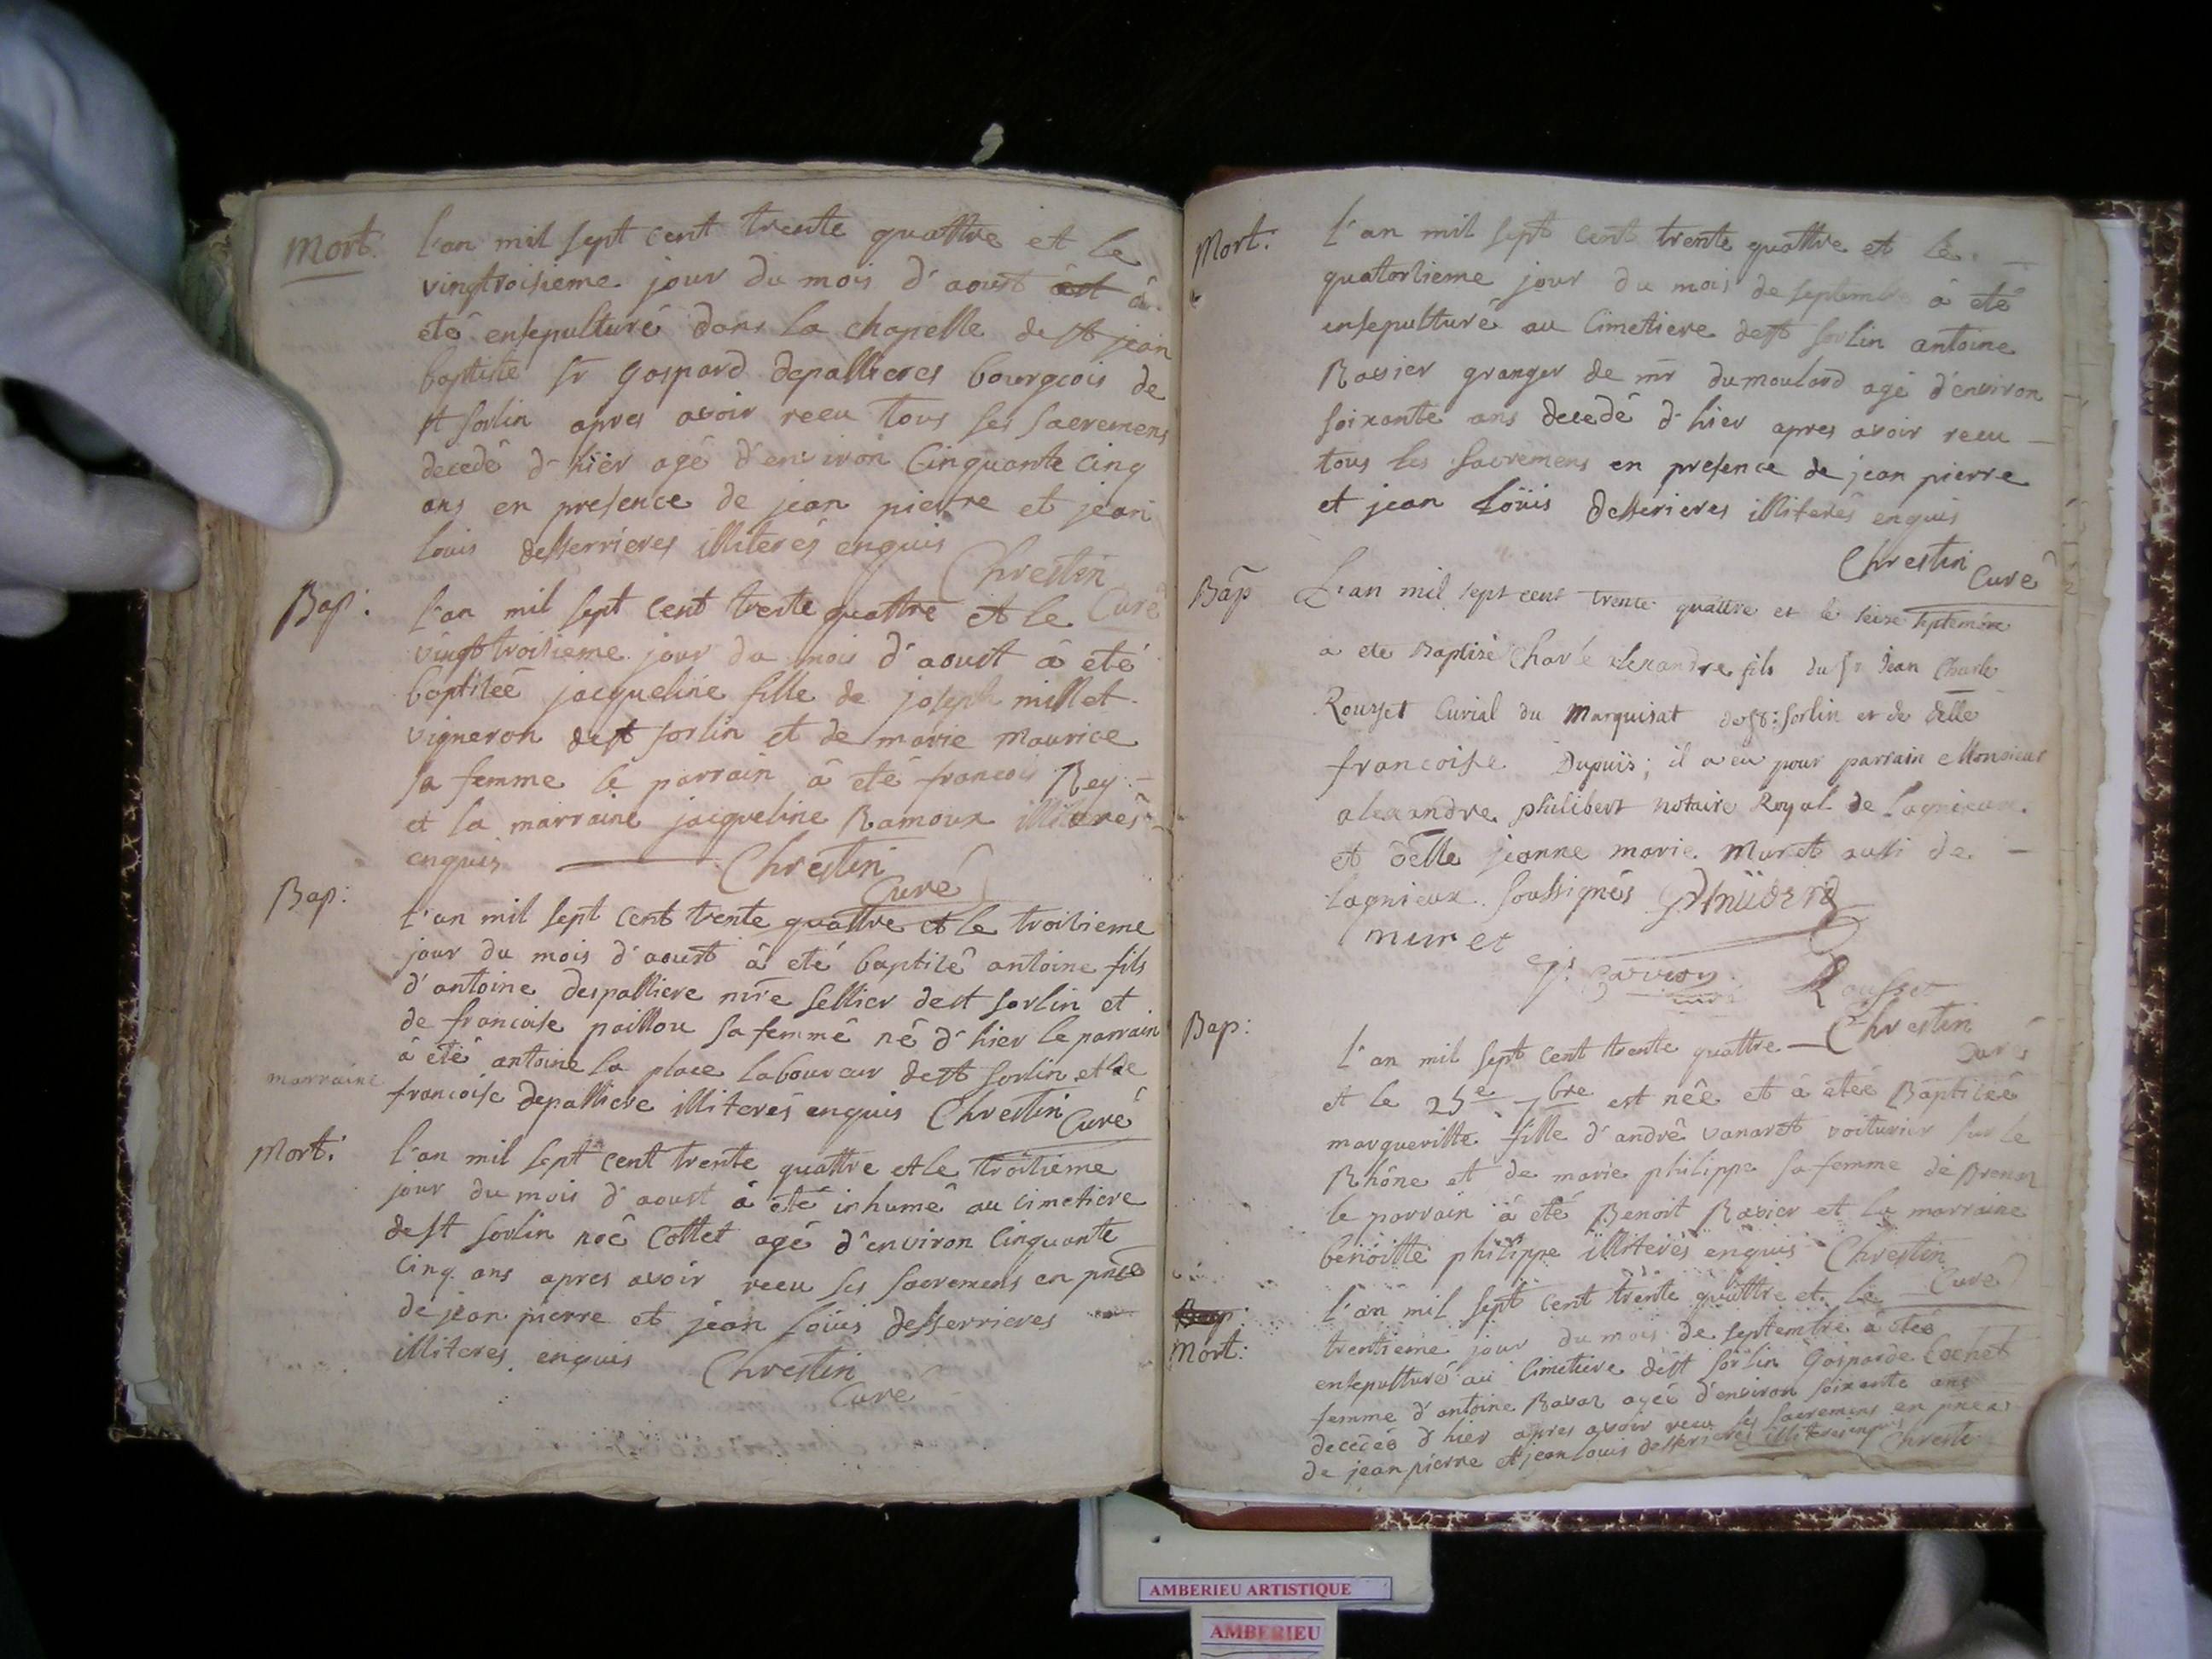 Mort.
l'an mil sept cent trente quattre et le
vingtroisieme jour du mois d'aoust à
eté ensepulturé dans la chapelle de st jean
baptiste sr Gaspard depallieres bourgeois de
st sorlin apres avoir receu tous ses sacremens
decedé d'hier agé d'environ Cinquante cinq
ans en presence de jean pierre et jean
louis desserrieres illiterés enquis
Chrestin
Curé
Bap:
l'an mil sept cent trente quattre et le
vingt troisieme jour du mois d'aoust à eté
baptiseé jacqueline fille de joseph millet
vigneron de st sorlin et de marie maurice
sa femme le parrain à eté francois Rey
et la marraine jacqueline Ramoux illiterés
enquis Chrestin
Curé
Bap:
l'an mil sept cent trente quattre et le troisieme
jour du mois d'aoust à eté baptisé antoine fils
d'antoine despalliere mre sellier de st sorlin et
de francoise paillou sa femme né d'hier le parrain
à eté antoine la place laboureur de st sorlin et la
marraine
francoise depalliere illiterés enquis Chrestin
Curé
Mort:
l'an mil sept cent trente quattre et le troisieme
jour du mois d'aoust à eté inhumé au cimetiere
de st sorlin noé Cottet agé d'environ Cinquante
Cinq ans apres avoir receu ses sacremens en pnce
de jean pierre et jean louis desserrieres
illiteres enquis Chrestin
Curé
Mort:
l'an mil sept cent trente quattre et le
quatorsieme jour du mois de septembre à eté
ensepulturé au Cimetiere de st sorlin antoine
Rasier granger de mr dumoulard agé d'environ
soixante ans decedé d'hier apres avoir receu
tous les sacremens en presence de jean pierre
et jean loüis desserieres illiterés enquis
Chrestin
Curé
Bap
L'an mil sept cent trente quattre et le seize septembre
a ete Baptisé Charle alexandre fils du sr Jean Charle
Rousset Curial du Marquisat de st: sorlin et de delle
francoise Dupuis; il a eu pour parrain Monsieur
alexandre philibert notaire Royal de Lagnieux.
et delle jeanne marie Muret aussi de
lagnieux soussignés
muret
Rousset
Chrestin
Curé
Bap:
l'an mil sept cent trente quattre
et le 25e 7bre est née et à eteé Baptiseé
margueritte fille d'andré vanaret voiturier sur le
Rhône et de marie philippe sa femme de
le parrain à eté Benoit Rasier et la marraine
benoitte philippe illiterés enquis Chrestin
Curé
Bap:
Mort:
l'an mil sept cent trente quattre et le
trentieme jour du mois de septembre à eteé
ensepulturé au Cimetiere de st sorlin Gasparde Cochet
femme d'antoine Ravaz ageé d'environ soixante ans
decedeé d'hier apres avoir receu ses sacremens en
de jean pierre et jean louis desserieres illiteres enquis Chrestin
AMBERIEU ARTISTIQUE
AMBERIEU